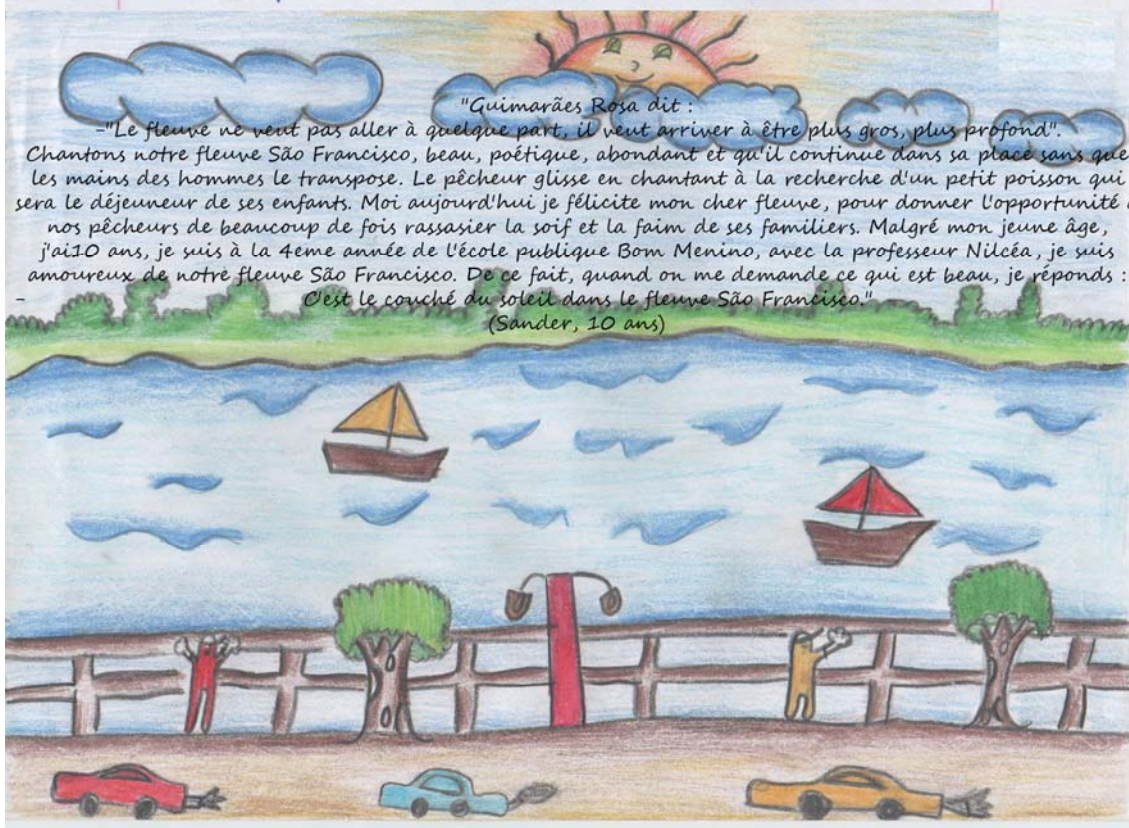 "Guimarães Rosa dit :
-"Le fleuve ne veut pas aller à quelque part, il veut arriver à être plus gros, plus profond".
Chantons notre fleuve São Francisco, beau, poétique, abondant et qu'il continue dans sa place sans que
les mains des hommes le transpose. Le pêcheur glisse en chantant à la recherche d'un petit poisson qui
sera le déjeuneur de ses enfants. Moi aujourd'hui je félicite mon cher fleuve, pour donner l'opportunité
nos pêcheurs de beaucoup de fois rassasier la soif et la faim de ses familiers. Malgré mon jeune âge,
j'ai10 ans, je suis à la 4eme année de l'école publique Bom Menino, avec la professeur Nilcéa, je suis
amoureux de notre fleuve São Francisco. De ce fait, quand on me demande ce qui est beau, je réponds :
- C'est le couché du soleil dans le fleuve São Francisco."
(Sander, 10 ans)